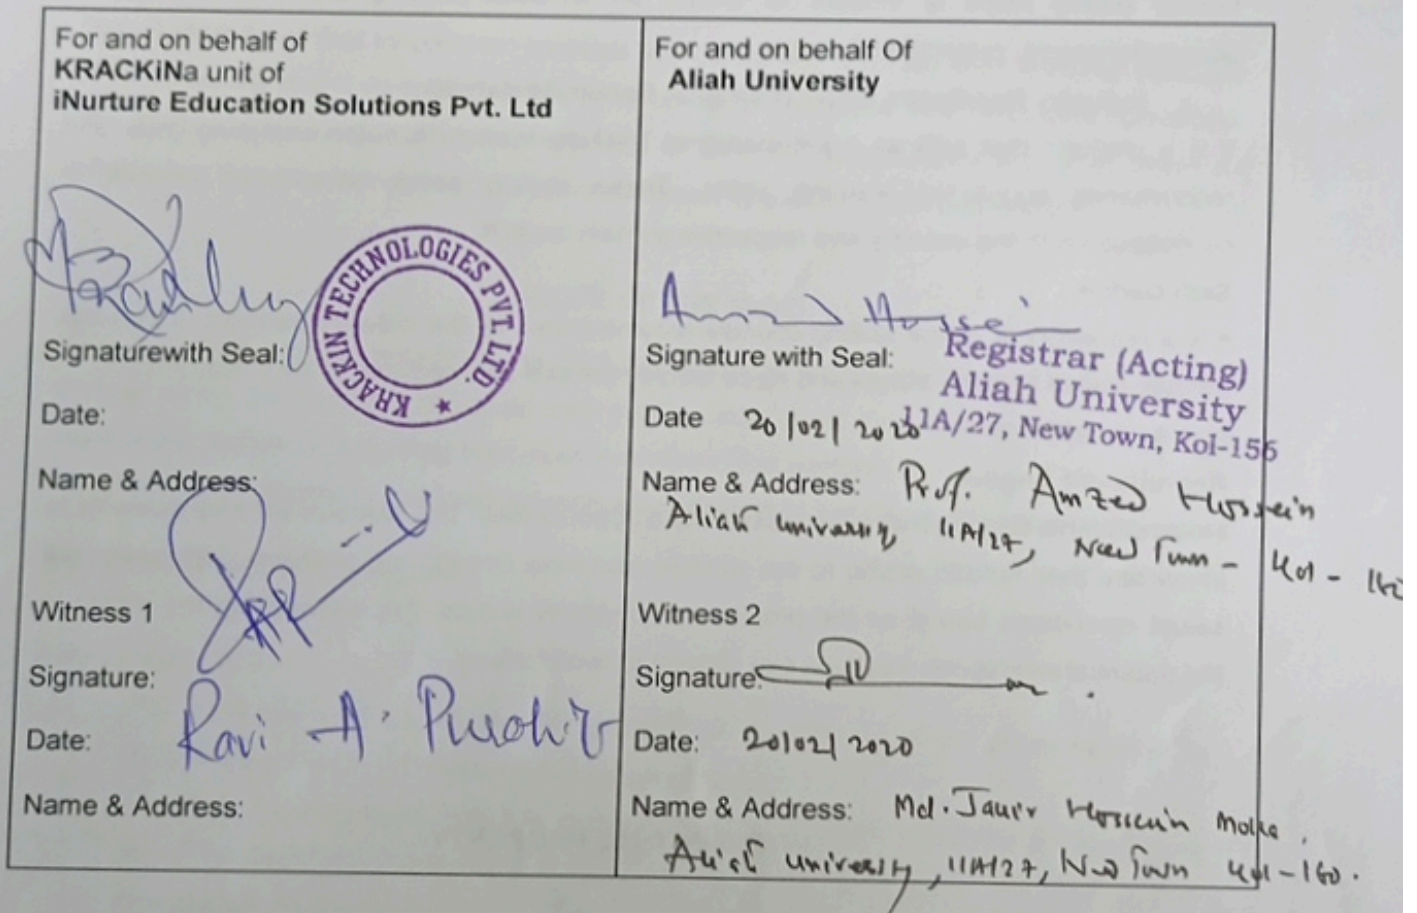 For and on behalf of
KRACKiNa unit of
iNurture Education Solutions Pvt. Ltd
KRACKIN TECHNOLOGIES PVT. LTD.
Signaturewith Seal:
Date:
Name & Address:
Witness 1
Signature:
Ravi A. Purohit
Date:
Name & Address:
For and on behalf Of
Aliah University
Amzed Hossein
Signature with Seal:
Registrar (Acting)
Aliah University
11A/27, New Town, Kol-156
Date 20/02/2020
Name & Address: Prof. Amzed Hossein
Aliah University, 11A/27, New Town - Kol - 160
Witness 2
Signature:
Date: 20/02/2020
Name & Address: Md. Hossein
Aliah University, 11A/27, New Town Kol-160.